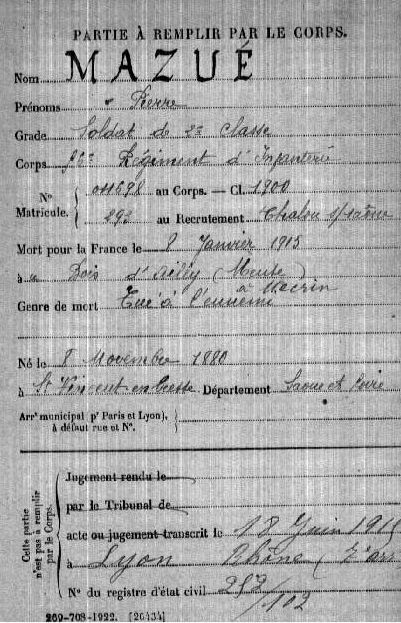 PARTIE À REMPLIR PAR LE CORPS.
Nom MAZUÉ
Prénoms Pierre
Grade Soldat de 2e Classe
Corps Régiment d'Infanterie
No Matricule. 011698 au Corps. — Cl. 1900
292 au Recrutement Chalon s/Saône
Mort pour la France le 8 Janvier 1915
à Bois d'Ailly (Meuse)
à Mécrin
Genre de mort Tué à l'ennemi
Né le 8 Novembre 1880
à St Vincent en bresse Département Saône et Loire
Arrt municipal (pr Paris et Lyon),
à défaut rue et No.
Cette partie n'est pas à remplir par le Corps.
Jugement rendu le
par le Tribunal de
acte ou jugement transcrit le 18 Juin 1915
à Lyon Rhône (2e arr
No du registre d'état civil 257/102
269-708-1922. [26434]